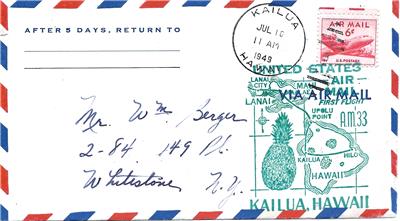 AFTER 5 DAYS, RETURN TO
KAILUA
JUL 16
11 AM
1949
HAWAII
AIR MAIL
6¢
U.S. POSTAGE
UNITED STATES
AIR
MAIL
FIRST FLIGHT
VIA AIR MAIL
LANAI CITY
LANAI
MAUI
UPOLU POINT
A.M. 33
KAILUA
HILO
HAWAII
KAILUA, HAWAII
Mr. Wm. Berger
2-84 149 Pl.
Whitestone
N.Y.